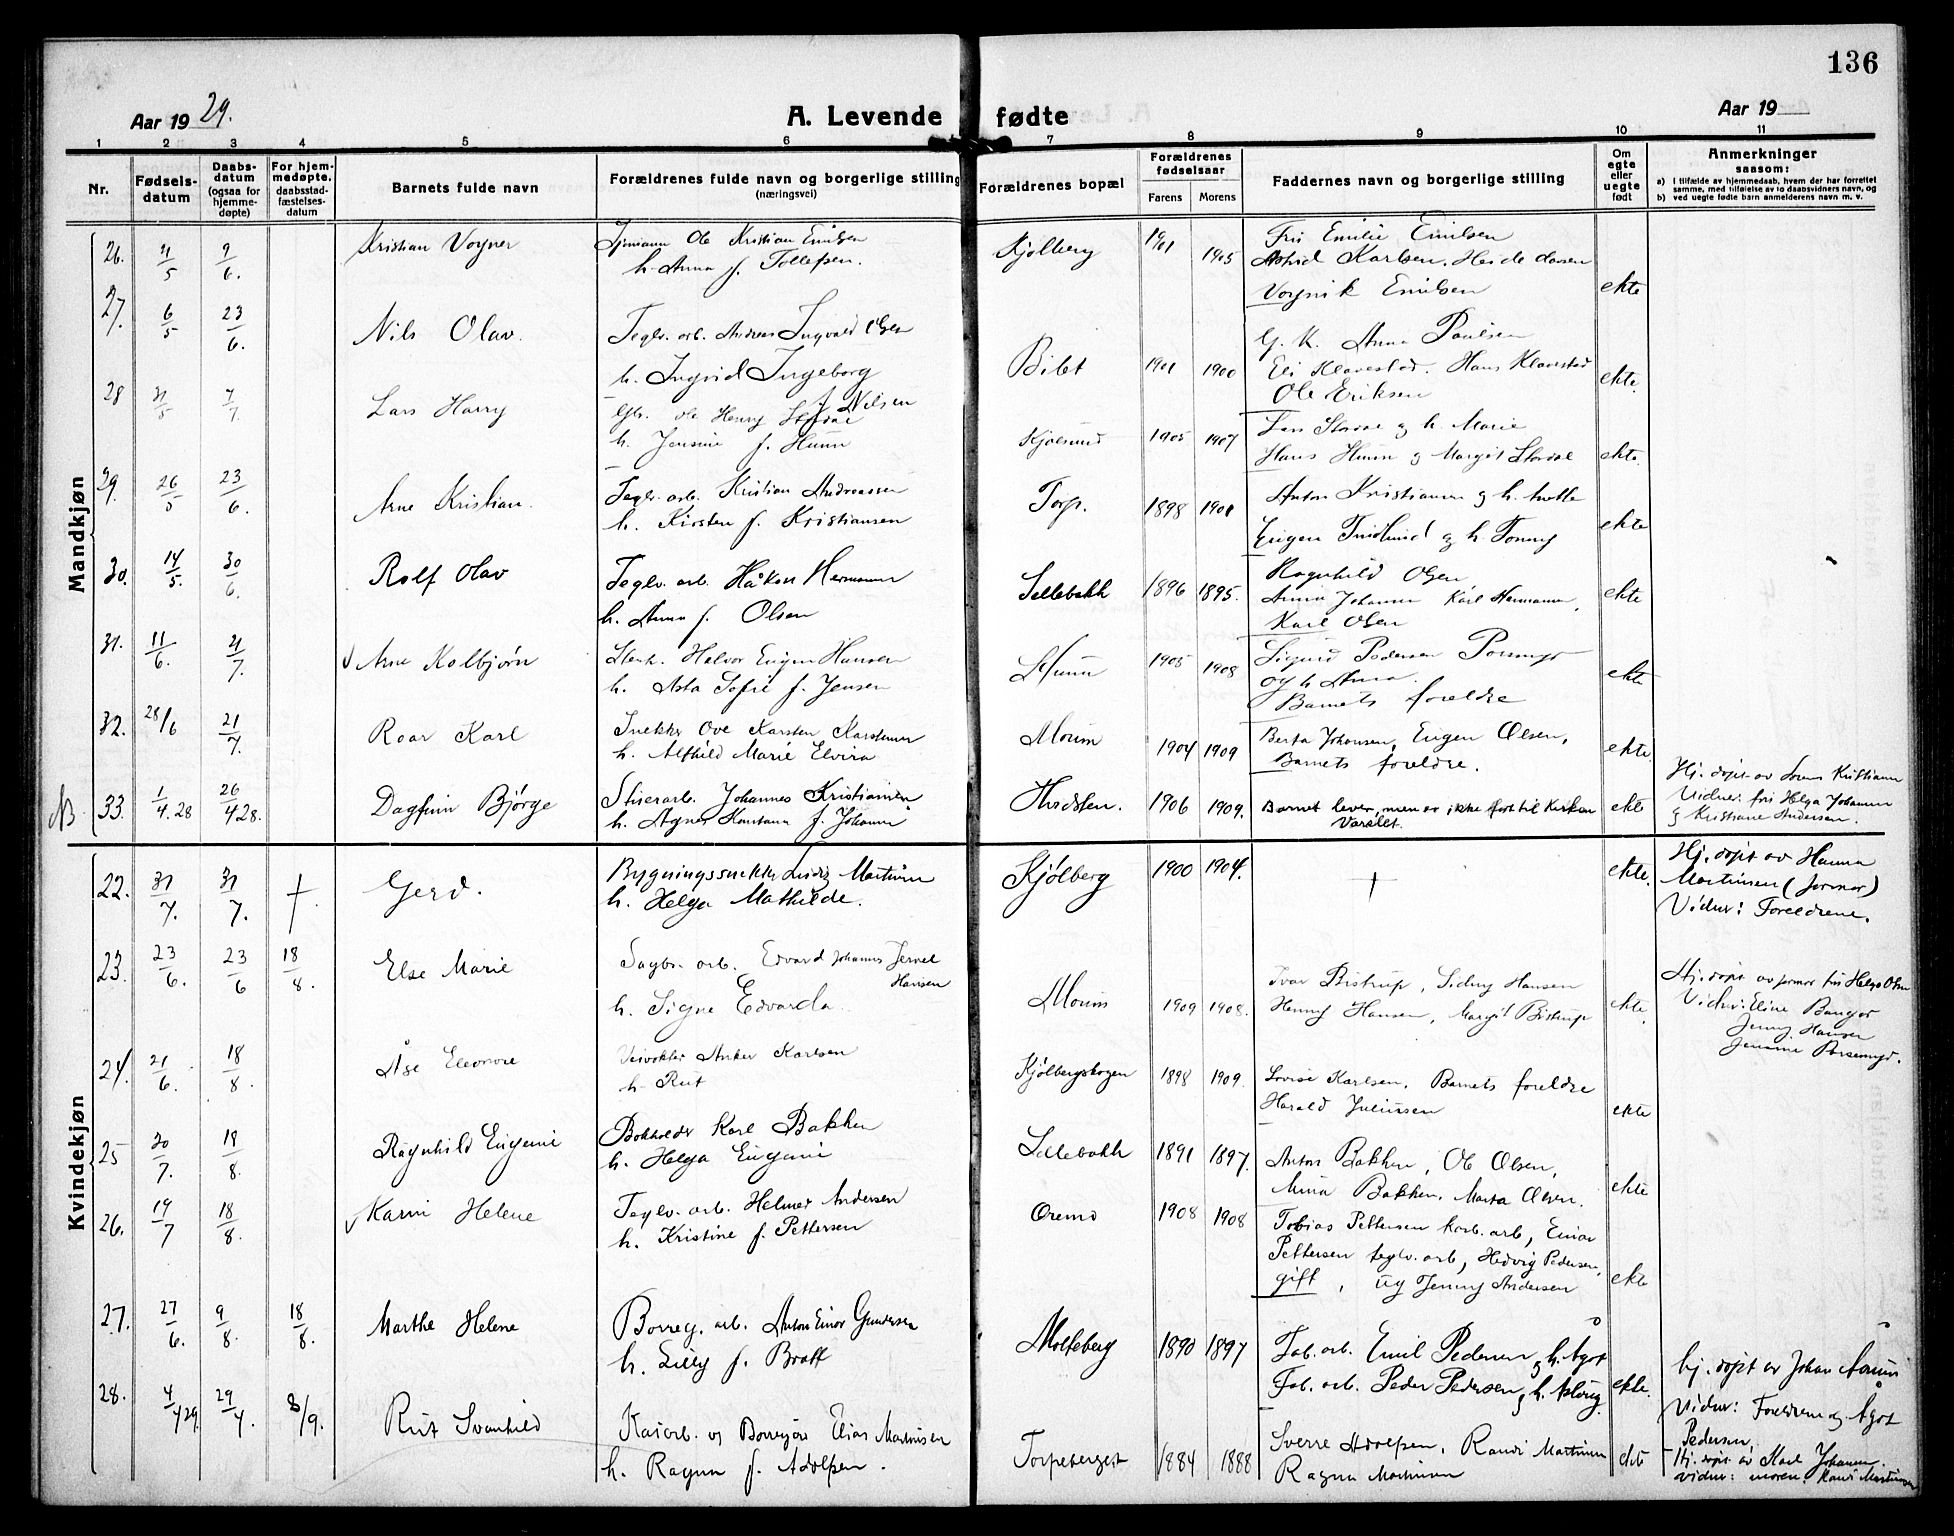 136
Aar 1929.
A. Levende fødte
Aar 19
1 2 3 4 5 6 7 8 9 10 11
Nr.
Fødsels-
datum
Daabs-
datum
(ogsaa for
hjemme-
døpte)
For hjem-
medøpte.
daabsstad-
fæstelses-
datum
Barnets fulde navn
Forældrenes fulde navn og borgerlige stilling
(næringsvei)
Forældrenes bopæl
Forældrenes
fødselsaar
Farens Morens
Faddernes navn og borgerlige stilling
Om
egte
eller
uegte
født
Anmerkninger
saasom:
a) I tilfælde av hjemmedaab, hvem der har forrettet
samme, med tilføielse av to daabsvidners navn, og
b) ved uegte født barn anmelderens navn m. v.
Mandkjøn
26. 4/5 9/6. Kristian Vogner
Ole Kristian Emilsen
h. Anna f. Tollefsen.
Kjølberg 1901 1905
Frk Emilie Emilsen
Astrid Karlsen,
Emilsen
ekte
27. 6/5 23/6. Nils Olav.
Teglv. arb. Andreas Ingvald Olsen
h. Ingrid Ingeborg
f. Nilsen
Bilet 1901 1900
G. K. Anna Paulsen
Eli Klavestad. Hans Klavestad
Ole Eriksen
ekte.
28 31/5 7/7. Lars Harry
Ole Henry Stordal
h. Jensine f. Hunn
Kjølsund 1905 1907
Lars Stordal og h. Marie
Hans Hunn og Margit Stordal
ekte.
29. 26/5 23/6. Arne Kristian.
Teglv. arb. Kristian Andreassen
h. Kirsten f. Kristiansen
Torp. 1898 1901
Anton Kristiansen og h.
og h. Tonny
ekte
30. 14/5. 30/6. Rolf Olav
Teglv. arb. Håkon Hermansen
h. Anna f. Olsen
Sellebakk 1896 1895.
Ragnhild Olsen,
Anna Johansen Karl Hermansen,
Karl Olsen
ekte
31. 11/6. 21/7. Arne Kolbjørn
Halvor Eugen Hansen
h. Asta Sofie f. Jensen
Hunn 1905 1908
Sigurd Pedersen
og h. Anna.
Barnets foreldre
ekte
32. 28/6 21/7. Roar Karl
Snekker Ove Karsten Karstensen
h. Alfhild Marie Elvira
Moum 1904 1909
Berta Johansen, Eugen Olsen,
Barnets foreldre.
ekte
NB. 33. 1/4.28 26/4 28. Dagfinn Bjørge
Johannes Kristiansen
h. Agnes Konstanse f. Johansen
Hudsten. 1906 1909.
Barnet lever, men er ikke ført til Kirken
Varslet.
ekte
Hj. døpt av Kristiansen
Vidner: frk Helga Johansen
og Kristiane Andersen.
Kvindekjøn
22. 31/7. 31/7. † Gerd.
Bygningssnekker Ludvig Martinsen
h. Helga Mathilde.
Kjølberg 1900 1904. † ekte.
Hj. døpt av Hanna
Martinsen (farmor)
Vidner: Foreldrene.
23. 23/6. 23/6 18/8. Else Marie
Sagbr. arb. Edvard Johannes
Hansen
h. Signe Edvarda.
Moum 1909 1908.
Ivar Bistrup, Sidney Hansen
Henny Hansen, Margit Bistrup
ekte.
Hj. døpt av farmor fru Helga Olsen
Vidner: Eline Bangor
Jenny Hansen
24. 21/6. 18/8. Åse Eleonore
Veivokter Anker Karlsen
h. Rut
Kjølbergskogen 1898 1909.
Lovise Karlsen, Barnets foreldre
Harald Juliussen
ekte
25 20/7. 18/8. Ragnhild Eugenie
Bokholder Karl Bakken
h. Helga Eugenie
Sellebakk 1891 1897.
Anton Bakken, Ole Olsen,
Anna Bakken, Marta Olsen.
ekte
26. 19/7 18/8. Karin Helene
Teglv. arb. Helmer Andersen
h. Kristine f. Pettersen
Øremo 1908 1908
Tobias Pettersen arb, Einar
Pettersen teglv. arb, Hedvig Pedersen,
gift, ug Jenny Andersen
ekte
27. 27/6. 9/8. 18/8. Marthe Helene
Borreg. arb. Anton Einar Gundersen
h. Lilly f. Bratt
Molteberg 1890 1897
Fab. arb. Emil Pedersen og h. Ågot
Fab. arb. Peder Pedersen, og h. Åslaug.
ekte.
hj. døpt av Johan
Vidner: Foreldrene og Ågot
Pedersen
28. 4/4 29. 29/4. 8/9. Rut Svanhild
Elias Martinsen
h. Ragna f. Adolfsen.
Torpeberget 1884 1888
Sverre Adolfsen, Randi Martinsen
Ragna Martinsen
ekte
Hj. døpt av Karl Johansen.
vidner: moren, Randi Martinsen